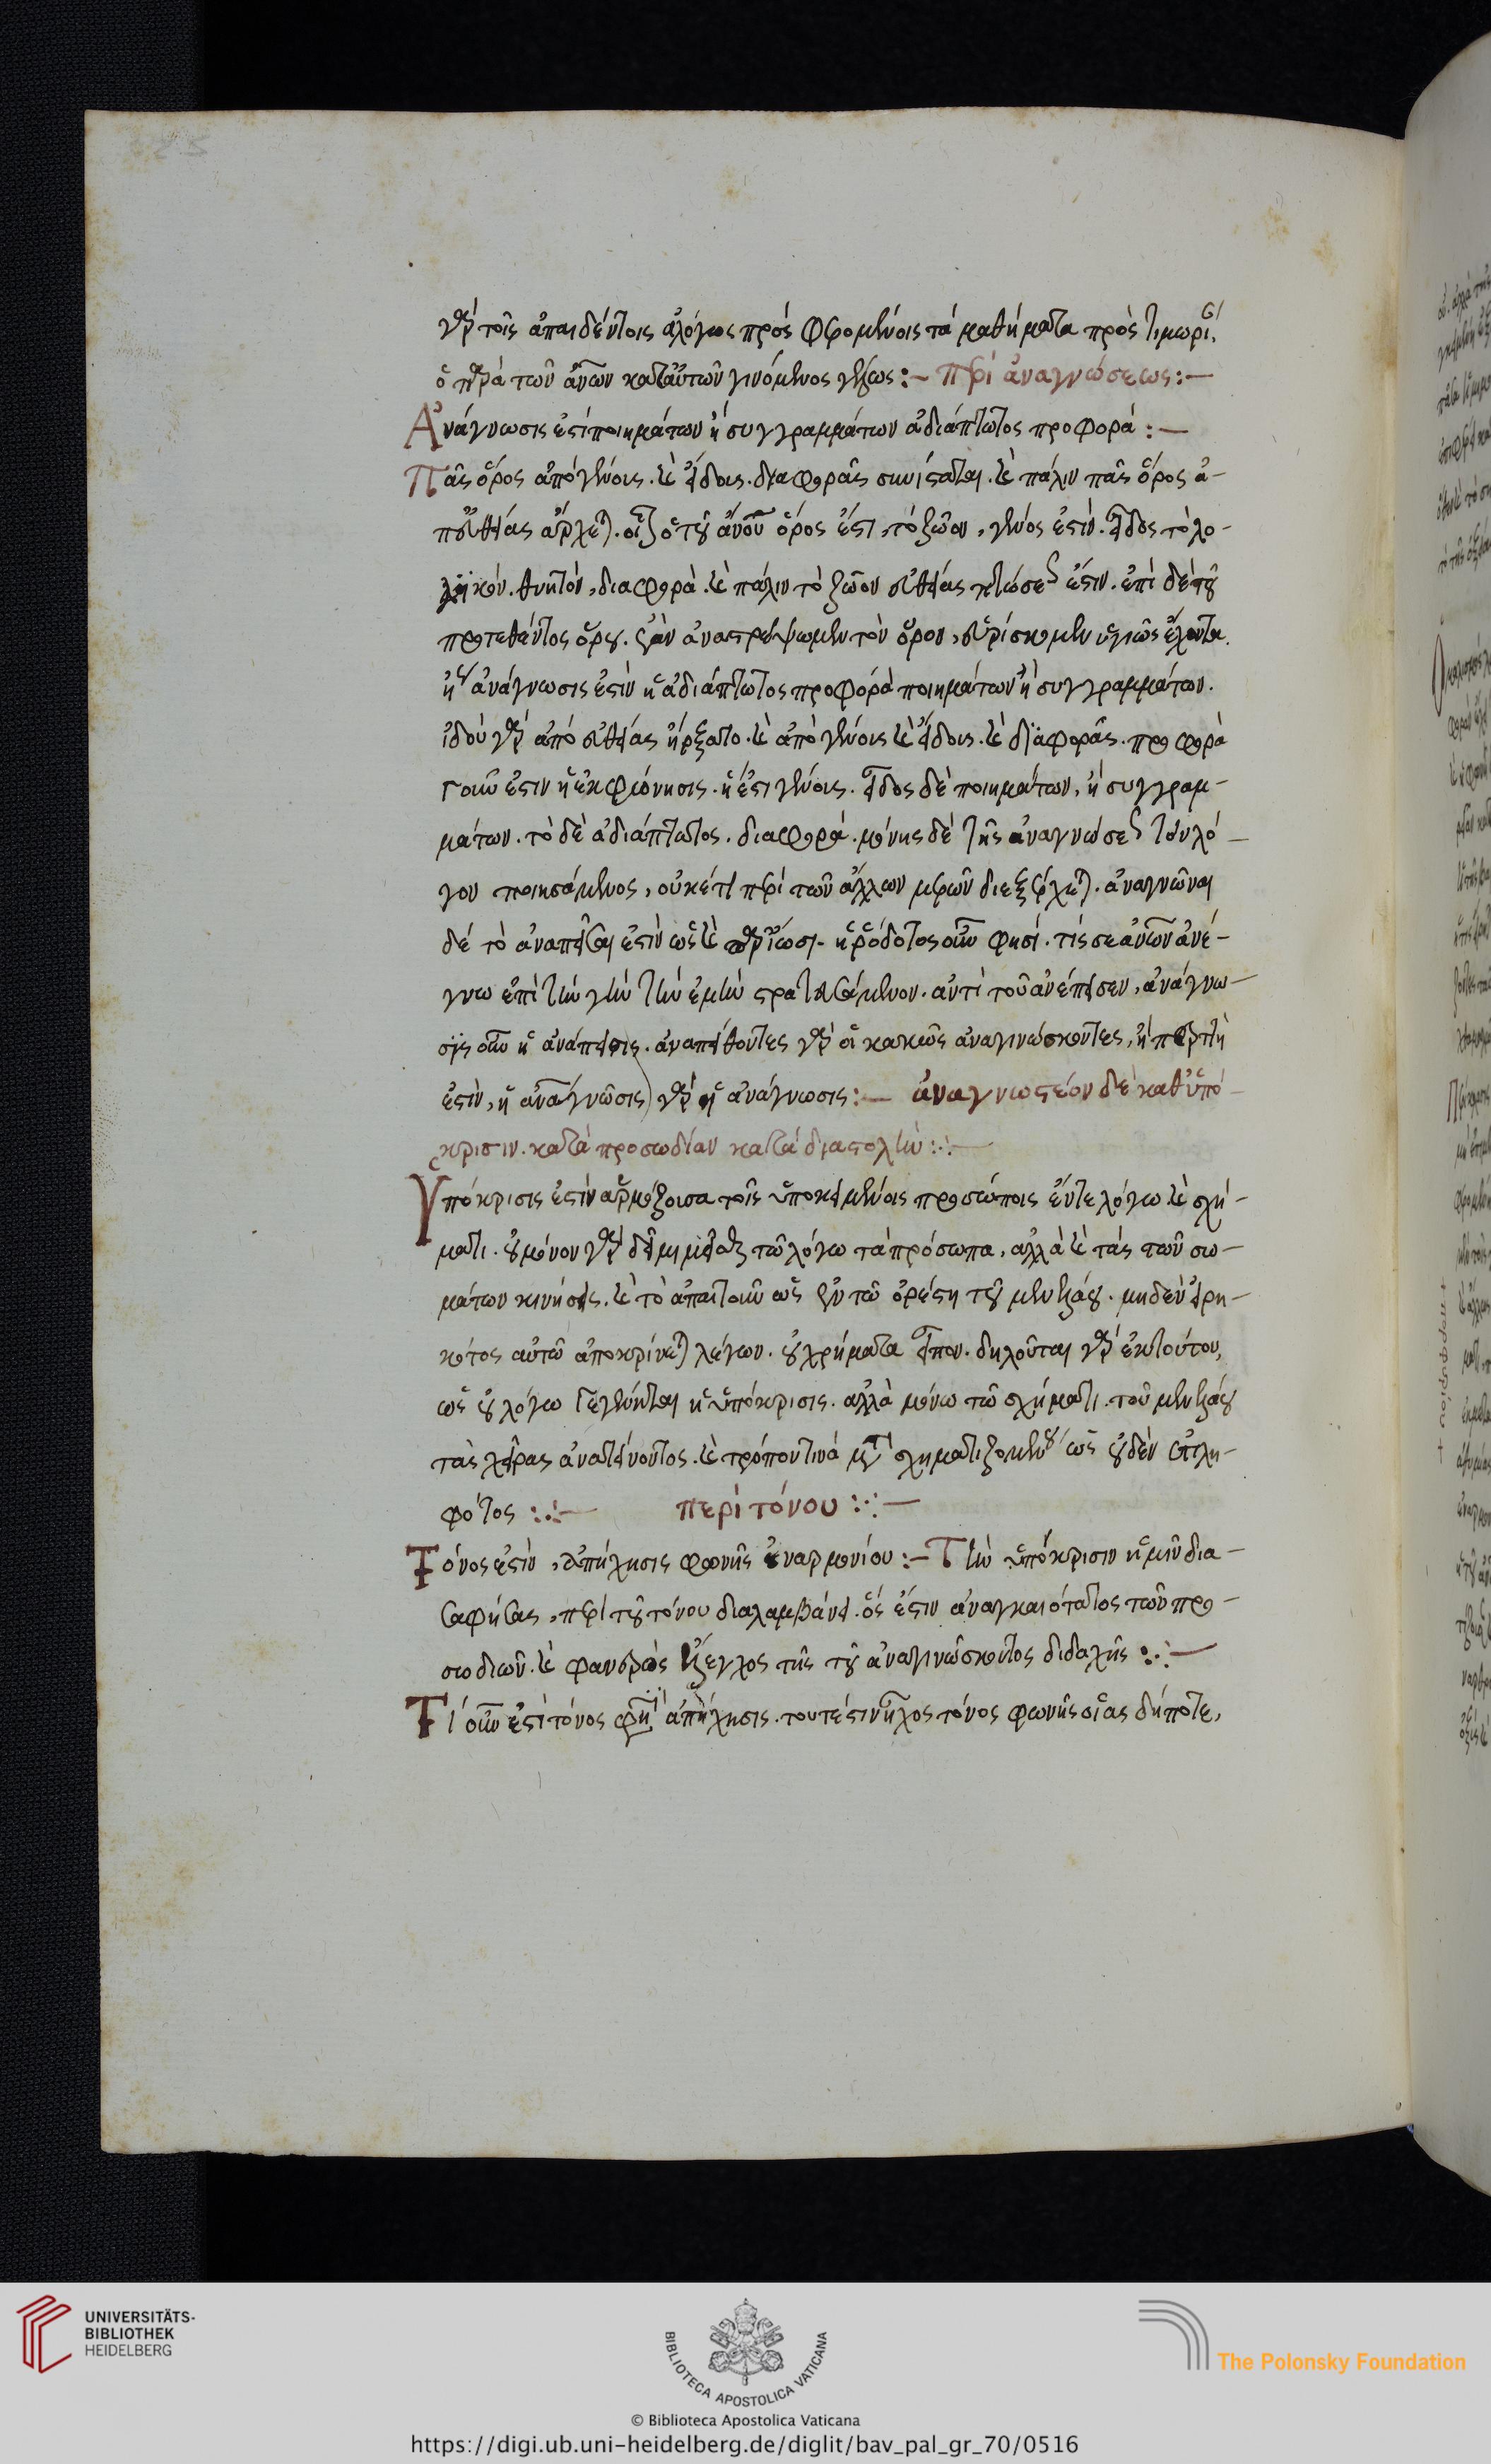 γὰρ τοῖς ἀπαιδεύτοις ἀλόγως προσφερομένοις τὰ μαθήματα πρὸς τιμωρί
ὁ παρὰ τῶν ἀνων κατ' αὐτῶν γινόμενος γέλως :- περὶ ἀναγνώσεως :-
Ἀνάγνωσις ἐστὶ ποιημάτων ἢ συγγραμμάτων ἀδιάπτωτος προφορά :-
Πᾶς ὅρος ἀπὸ γένους. καὶ εἴδους. διαφορᾶς συνίσταται. καὶ πάλιν πᾶς ὅρος ἀ-
π' εὐθείας ἄρχεται. ὁ τοῦ ἀνου ὅρος ἐστι, τὸ ζῶον, γένος ἐστίν. εἶδος τὸ λο-
γικόν. θνητὸν, διαφορά. καὶ πάλιν τὸ ζῶον εὐθείας πτώσεως ἐστιν. ἐπὶ δὲ τοῦ
προτεθέντος ὅρου. ἐὰν ἀναστρέψωμεν τὸν ὅρον, εὑρίσκομεν ὑγιῶς ἔχοντα.
ἀνάγνωσις ἐστὶν ἡ ἀδιάπτωτος προφορὰ ποιημάτων ἢ συγγραμμάτων.
ἰδοὺ γὰρ ἀπὸ εὐθείας ἤρξατο. καὶ ἀπὸ γένους καὶ εἴδους. καὶ διαφορᾶς. προφορὰ
γοῦν ἐστιν ἡ ἐκφώνησις. ἥ ἐστι γένους. εἶδος δὲ ποιημάτων, ἢ συγγραμ-
μάτων. τὸ δὲ ἀδιάπτωτος. διαφορά. μόνης δὲ τῆς ἀναγνώσεως τὸν λό-
γον ποιησάμενος, οὐκέτι περὶ τῶν ἄλλων μερῶν διεξέρχεται. ἀναγνῶναι
δέ τὸ ἀναπεῖσαι ἐστὶν ὡς καὶ ἡρόδοτος οὖν φησί. τίς σε ἀνων ἀνέ-
γνω ἐπὶ γῆν τὴν ἐμὴν στρατευσάμενον. ἀντὶ τοῦ ἀνέπεισεν, ἀνάγνω-
σις οὖν ἡ ἀνάπεισις. ἀναπείθοντες γὰρ οἱ κακῶς ἀναγινώσκοντες, ἢ περιττὴ
ἐστὶν, ἡ ἀνὰ γνῶσις γὰρ ἡ ἀνάγνωσις :- ἀναγνωστέον δὲ καθ' ὑπό-
κρισιν. κατὰ προσωδίαν κατὰ διαστολὴν :-
Υπόκρισις ἐστὶν ἁρμόζουσα τοῖς ὑποκειμένοις προσώποις ἔν τε λόγω καὶ σχή-
ματι. οὐ μόνον γὰρ δεῖ μιμεῖσθαι τῶ λόγω τὰ πρόσωπα, ἀλλὰ καὶ τὰς τῶν σω-
μάτων κινήσεις. καὶ τὸ ἀπαιτοῦν ὡς ἐν τῶ ὀρέστη τοῦ μενελάου. μηδὲν εἰρη-
κότος αὐτῶ ἀποκρίνεται λέγων. οὐ χρήματα εἶπον. δηλοῦται γὰρ ἐκ τούτου,
ὡς οὐ λόγω γεγένηται ἡ ὑπόκρισις. ἀλλὰ μόνω τῶ σχήματι. τοῦ μενελάου
τὰς χεῖρας ἀνατείνοντος. καὶ τρόπον τινά σχηματιζομένου ὡς οὐδὲν εἰλη-
φότος :- περὶ τόνου :-
Τόνος ἐστὶν, ἀπήχησις φωνῆς ἐναρμονίου :- Τὴν ὑπόκρισιν ἡμῖν δια-
σαφήσας, περὶ τοῦ τόνου διαλαμβάνει. ὅς ἐστιν ἀναγκαιότατος τῶν προ-
σωδιῶν. καὶ φανερὸς ἔλεγχος τῆς τοῦ ἀναγινώσκοντος διδαχῆς :-
Τί οὖν ἐστὶ τόνος ἀπήχησις. τουτέστιν ἦχος τόνος φωνῆς οἵας δήποτε,
UNIVERSITÄTS-
BIBLIOTHEK
HEIDELBERG
BIBLIOTECA APOSTOLICA VATICANA
The Polonsky Foundation
© Biblioteca Apostolica Vaticana
https://digi.ub.uni-heidelberg.de/diglit/bav_pal_gr_70/0516